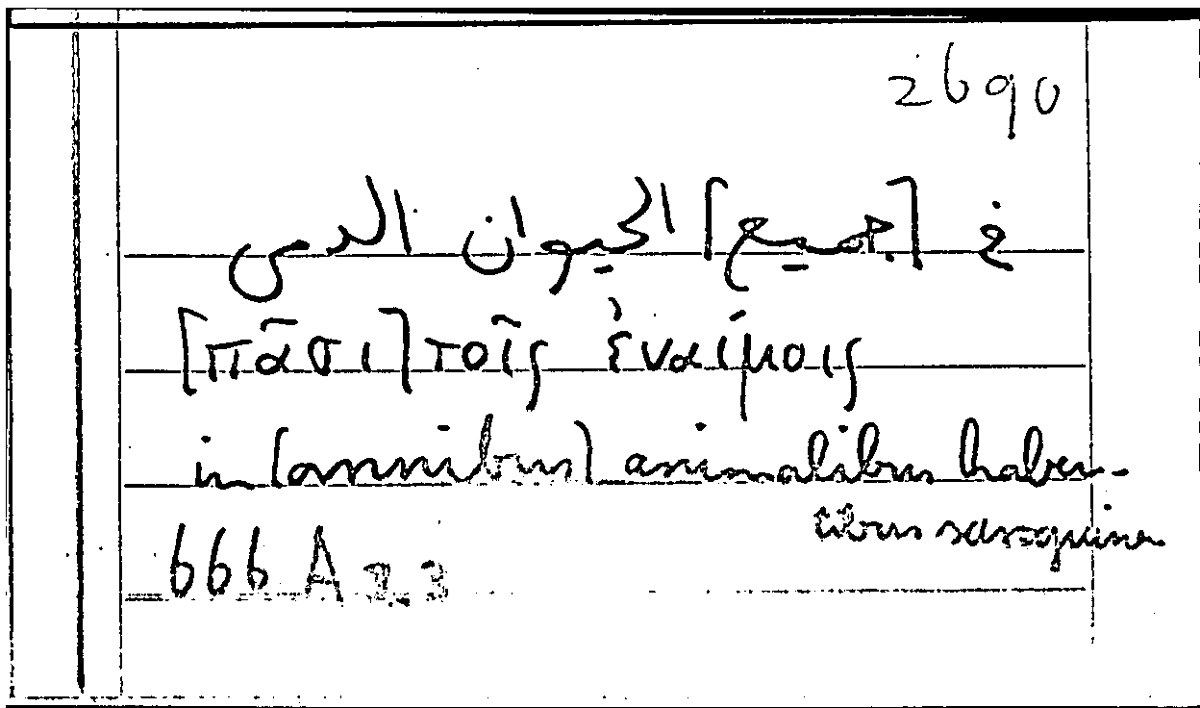 2690
في [جميع] الحيوان الدمى
[πᾶσι] τοῖς ἐναίμοις
in [omnibus] animalibus haben-
tibus sanguinem
666 A 23